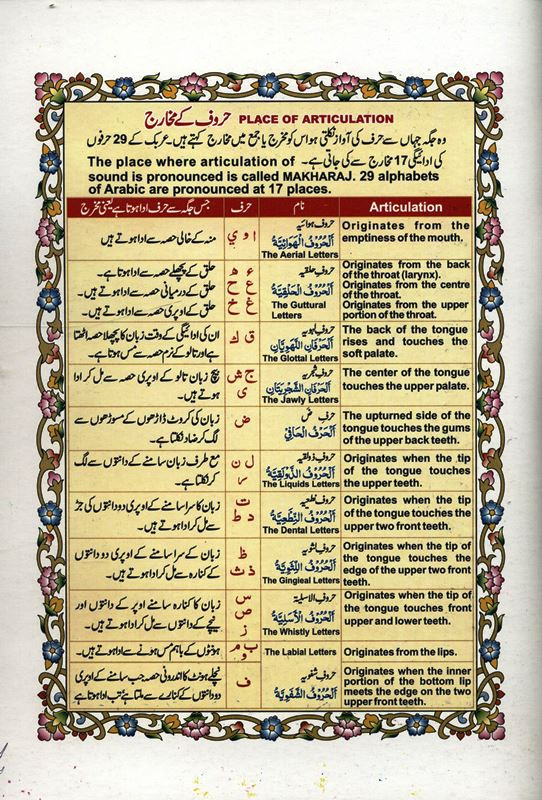 حروف کے مخارج PLACE OF ARTICULATION
وہ جگہ جہاں سے حرف کی آواز نکلتی ہو اس کو مخرج یا جمع میں مخارج کہتے ہیں۔ عربی کے 29 حرفوں
کی ادائیگی 17 مخارج سے کی جاتی ہے۔ The place where articulation of
sound is pronounced is called MAKHARAJ. 29 alphabets
of Arabic are pronounced at 17 places.
جس جگہ سے حرف ادا ہوتا ہے یعنی مخرج حرف نام Articulation
منہ کے خالی حصہ سے ادا ہوتے ہیں
ا و ي
حروف ہوائیہ
اَلْحُرُوْفُ الْهَوَائِيَّةُ
The Aerial Letters
Originates from the
emptiness of the mouth.
حلق کے پچھلے حصہ سے ادا ہوتا ہے۔
حلق کے درمیانی حصہ سے ادا ہوتے ہیں۔
حلق کے اوپری حصہ سے ادا ہوتے ہیں۔
ء ھ
ع ح
غ خ
حروف حلقیہ
اَلْحُرُوْفُ الْحَلْقِيَّةُ
The Guttural
Letters
Originates from the back
of the throat (larynx).
Originates from the centre
of the throat.
Originates from the upper
portion of the throat.
ان کی ادائیگی کے وقت زبان کا پچھلا حصہ اٹھتا
ہے اور تالو کے نرم حصہ سے مس ہوتا ہے۔
ق ك
اَلْحَرْفَانِ اللَّهْوِيَّانِ
The Glottal Letters
The back of the tongue
rises and touches the
soft palate.
بیچ زبان تالو کے اوپری حصہ سے مل کر ادا
ہوتے ہیں۔
ج ش
ی
حروف شجریہ
The Jawly Letters
The center of the tongue
touches the upper palate.
زبان کی کروٹ ڈاڑھوں کے مسوڑھوں سے
لگ کر ضاد نکلتا ہے۔
ض
حرف ض
اَلْحَرْفُ الْحَافِيُّ
The upturned side of the
tongue touches the gums
of the upper back teeth.
مع طرف زبان سامنے کے دانتوں سے لگ
کر نکلتا ہے۔
ل ن
ر
حروف ذولقیہ
اَلْحُرُوْفُ الذَّوْلَقِيَّةُ
The Liquids Letters
Originates when the tip
of the tongue touches
the upper teeth.
زبان کا سرا سامنے کے اوپری دو دانتوں کی جڑ
سے مل کر ادا ہوتے ہیں۔
ت
د ط
حروف نطعیہ
اَلْحُرُوْفُ النِّطْعِيَّةُ
The Dental Letters
Originates when the tip
of the tongue touches the
upper two front teeth.
زبان کے سرا سامنے کے اوپری دو دانتوں
کے کنارہ سے مل کر ادا ہوتے ہیں۔
ظ
ذ ث
حروف لثویہ
اَلْحُرُوْفُ اللِّثَوِيَّةُ
The Gingieal Letters
Originates when the tip of
the tongue touches the
edge of the upper two front
teeth.
زبان کا کنارہ سامنے اوپر کے دانتوں اور
نیچے کے دانتوں سے مل کر ادا ہوتے ہیں۔
س
ص
ز
حروف الاسلیۃ
اَلْحُرُوْفُ الْأَسْلِيَّةُ
The Whistly Letters
Originates when the tip of
the tongue touches front
upper and lower teeth.
ہونٹوں کے باہم مس ہونے سے ادا ہوتے ہیں۔
ب م
و
The Labial Letters
Originates from the lips.
نچلے ہونٹ کا اندرونی حصہ جب سامنے کے اوپری
دو دانتوں کے کنارے سے ملتا ہے تب ادا ہوتا ہے
ف
حروف شفویہ
اَلْحُرُوْفُ الشَّفَوِيَّةُ
Originates when the inner
portion of the bottom lip
meets the edge on the two
upper front teeth.